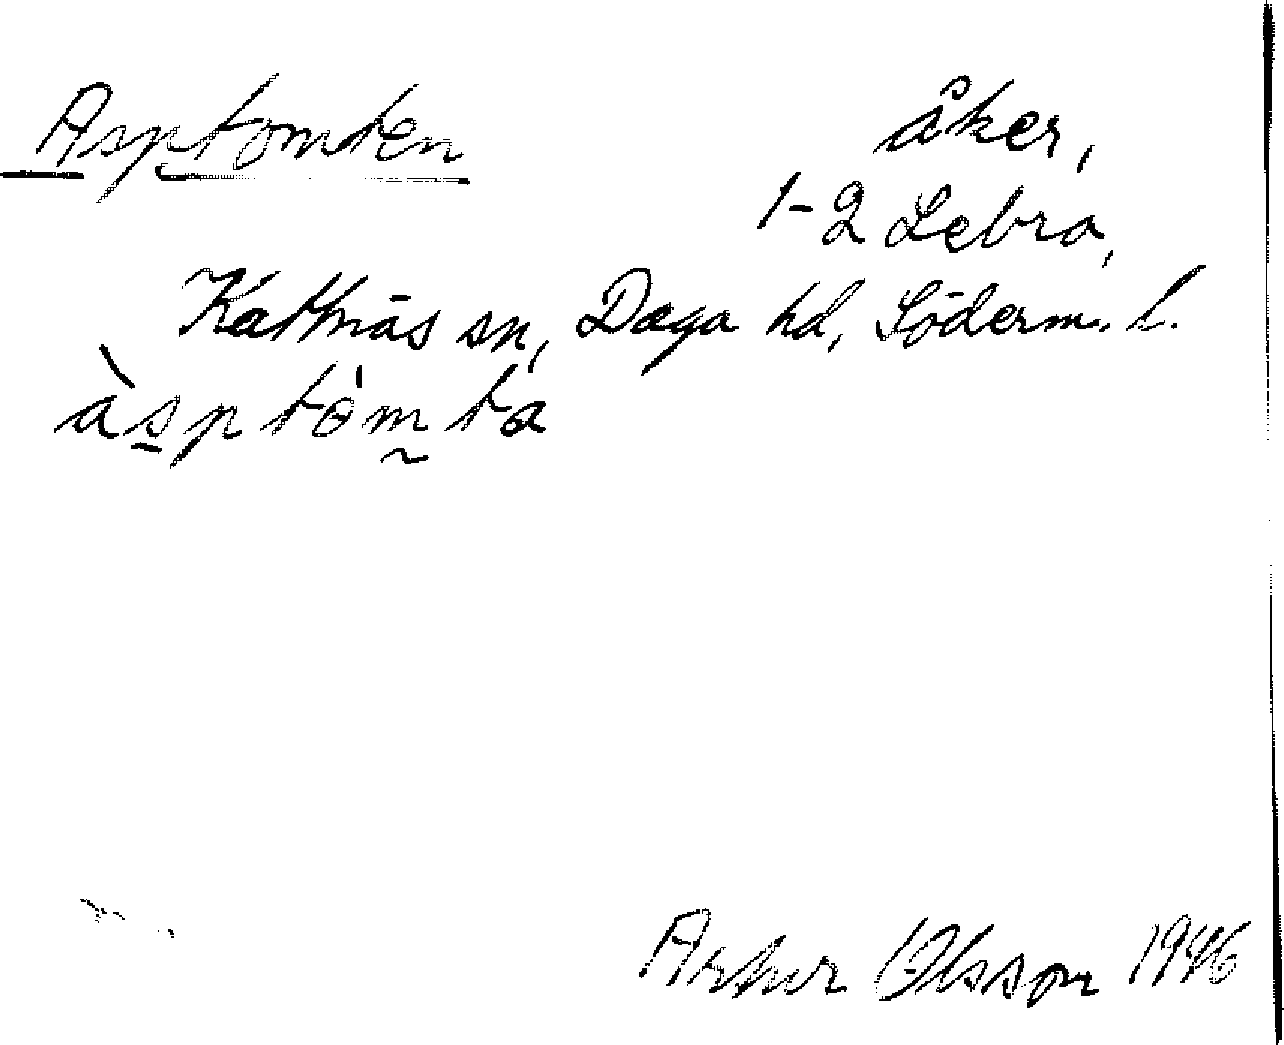 Asptomten åker,
1-2 Lebro,
Kattnäs sn, Daga hd, Söderm. l.
àsptòmta
Artur Olsson 1946